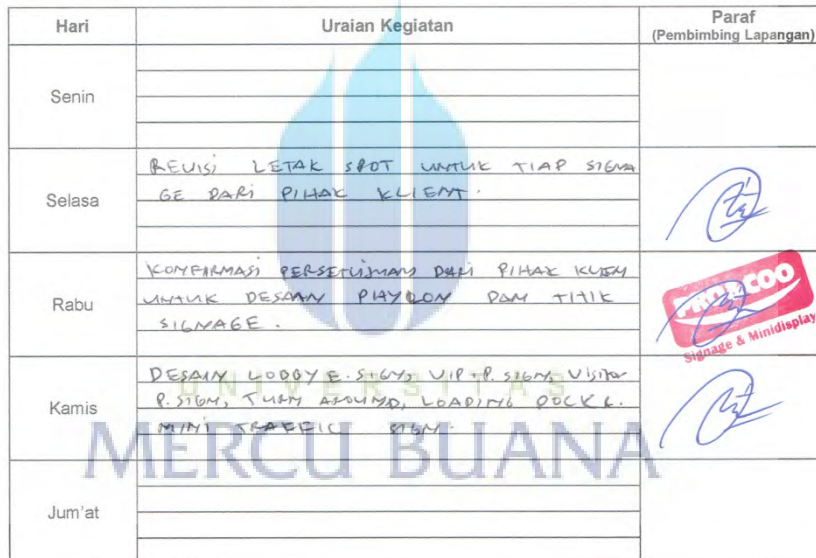 Hari Uraian Kegiatan Paraf
(Pembimbing Lapangan)
Senin
Selasa
REVISI LETAK SPOT UNTUK TIAP SIGNA
GE DARI PIHAK KLIENT.
Rabu
KONFIRMASI PERSETUJUAN DARI PIHAK KLIEN
UNTUK DESAIN PHYLON DAN TITIK
SIGNAGE.
PRO&COO
Signage & Minidisplay
Kamis
DESAIN LOBBY E. SIGN, VIP P. SIGN, Visitor
P. SIGN, TURN AROUND, LOADING DOCK &
MINI TRAFFIC SIGN.
UNIVERSITAS
MERCU BUANA
Jum'at